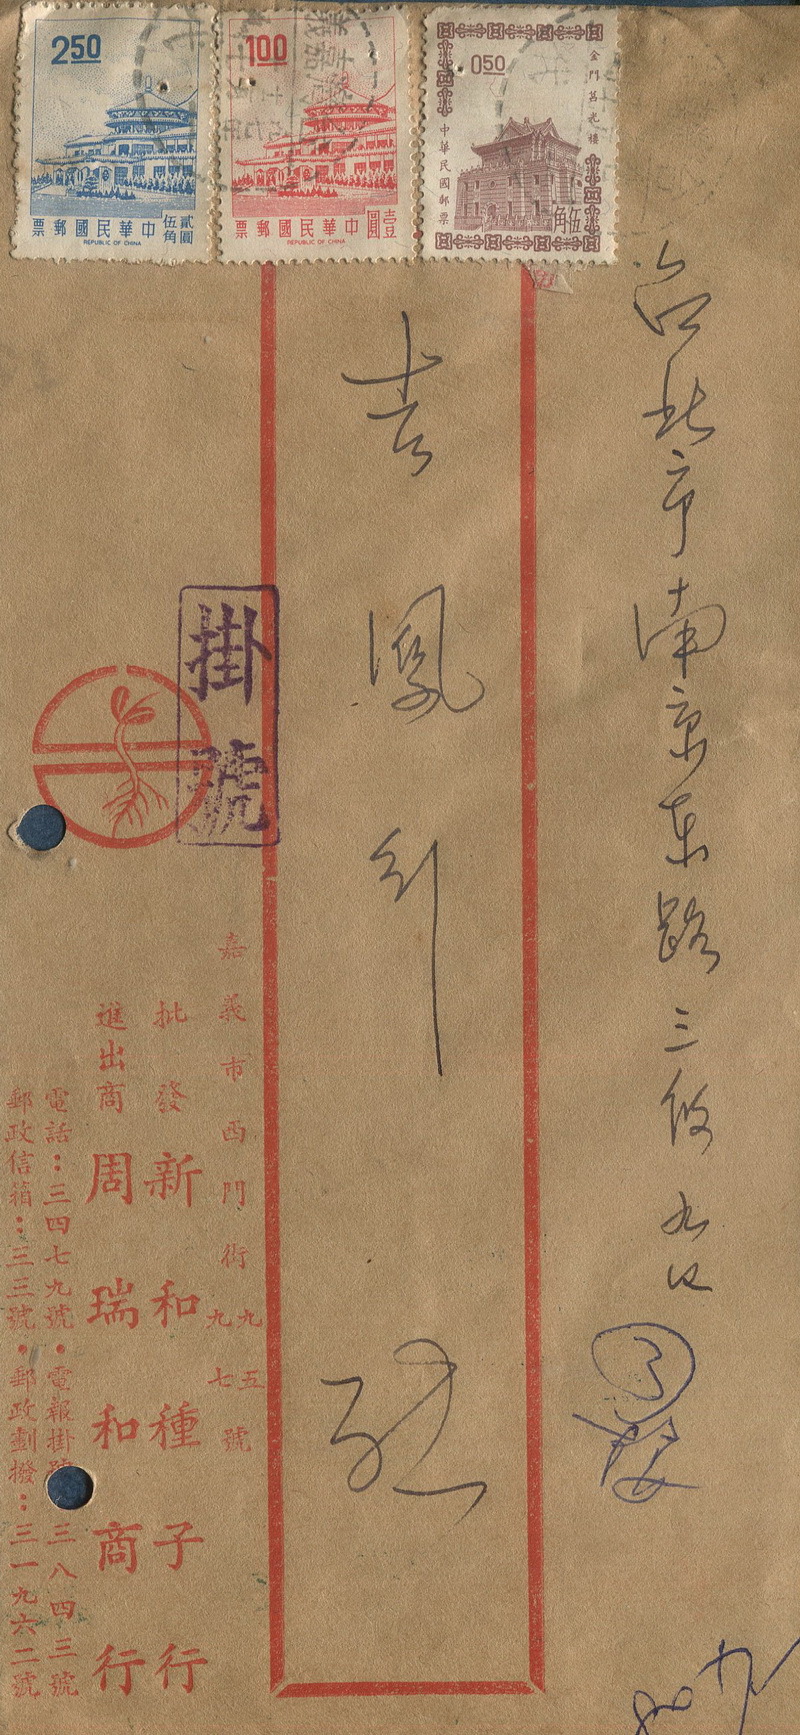 2.50
票郵國民華中
貳圓
伍角
REPUBLIC OF CHINA
1.00
票郵國民華中
壹圓
REPUBLIC OF CHINA
0.50
金門莒光樓
中華民國郵票
伍角
台北市南京東路三段九
吉鳳
掛號
嘉義市西門街九五九七號
批發 新和種子行
進出商 周瑞和商行
電話：三四七九號・電報掛號 三八四三號
郵政信箱：三三號・郵政劃撥：三一九六二號